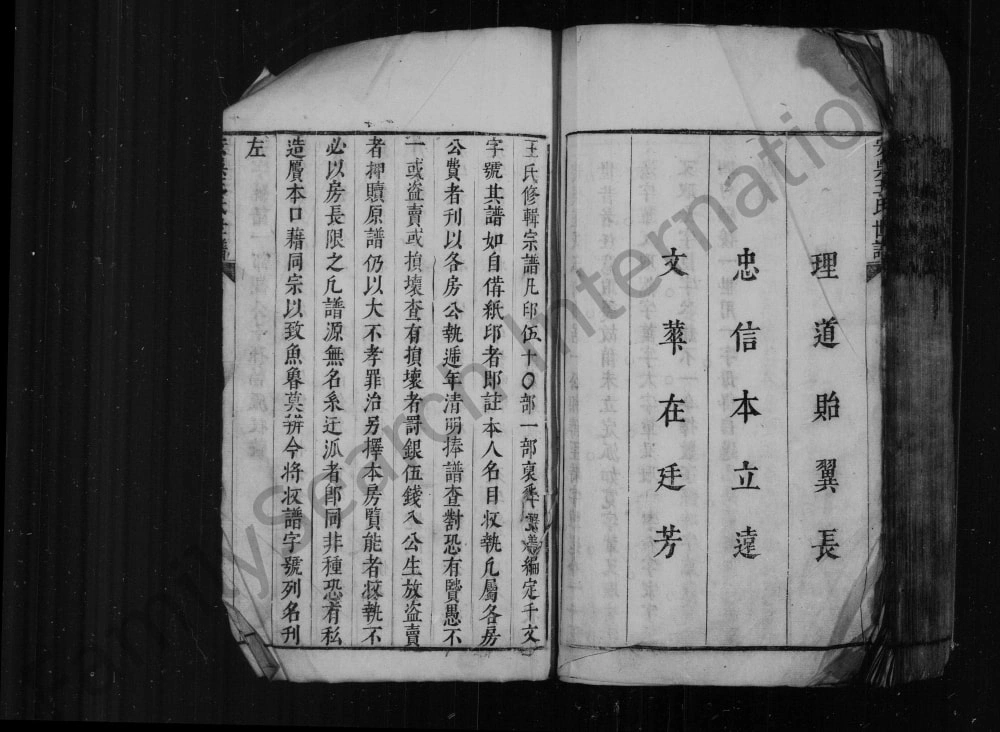 理道貽翼長
忠信本立遠
文華在廷芳
王氏修輯宗譜凡印伍十〇部一部編定千文
字號其譜如自備紙印者即註本人名目收執凡屬各房
公費者刊以各房公執遞年清明捧譜查對恐有賢愚不
一或盜賣或損壞查有損壞者罰銀伍錢入公生放盜賣
者押贖原譜仍以大不孝罪治另擇本房賢能者收執不
必以房長限之凡譜源無名系迁派者即同非種恐有私
造贋本口藉同宗以致魚魯莫辨今将收譜字號列名刊
左
王氏世譜
FamilySearch International